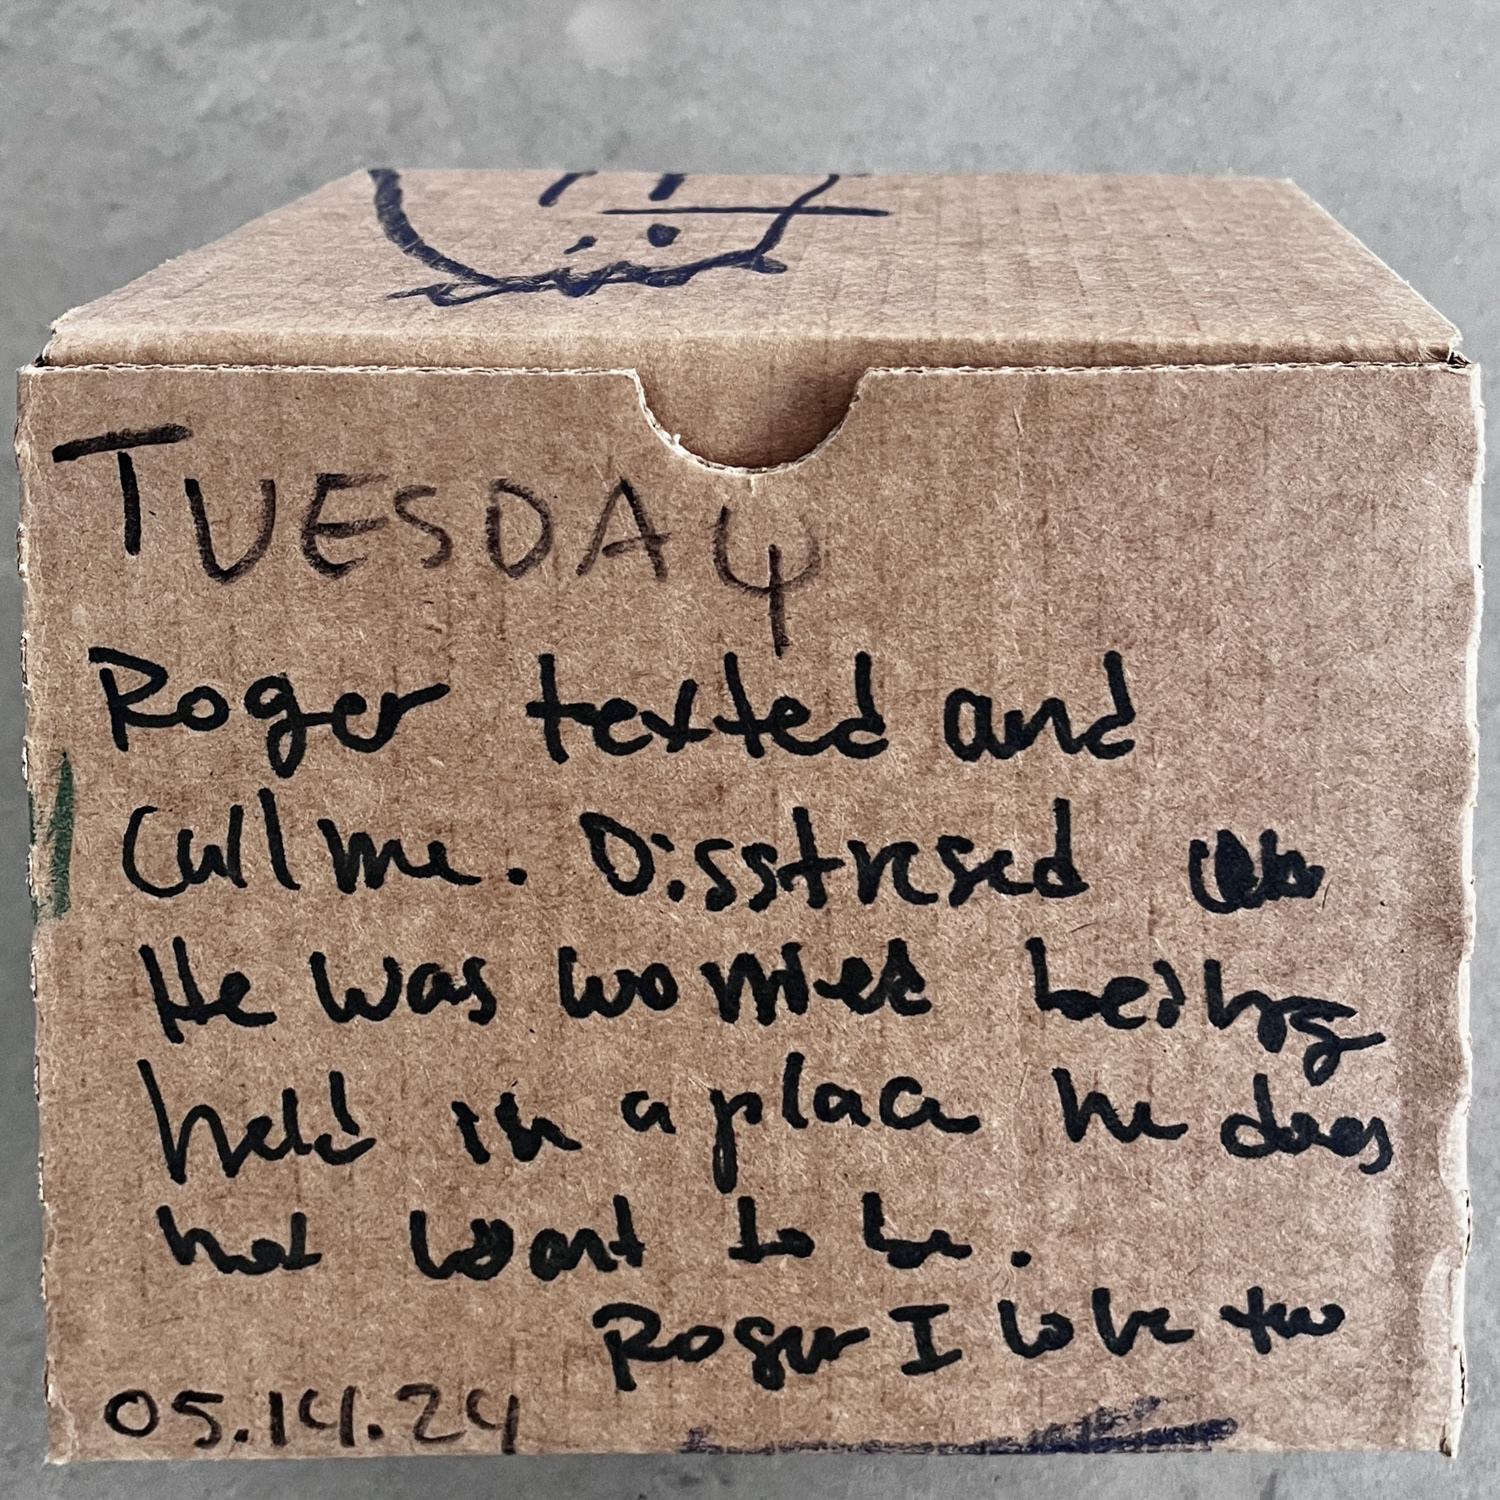 TUESDAY
Roger texted and
Call me. Disstresed
He was worried being
held in a place he does
not want to be.
Roger I
05.14.24